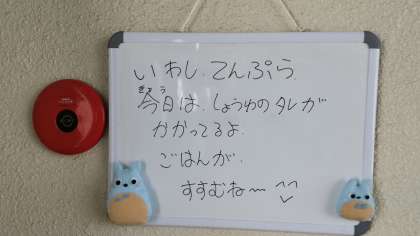 いわし.てんぷら.
きょう
今日は.しょうゆのタレが
かかってるよ.
ごはんが.
すすむね〜 ^^